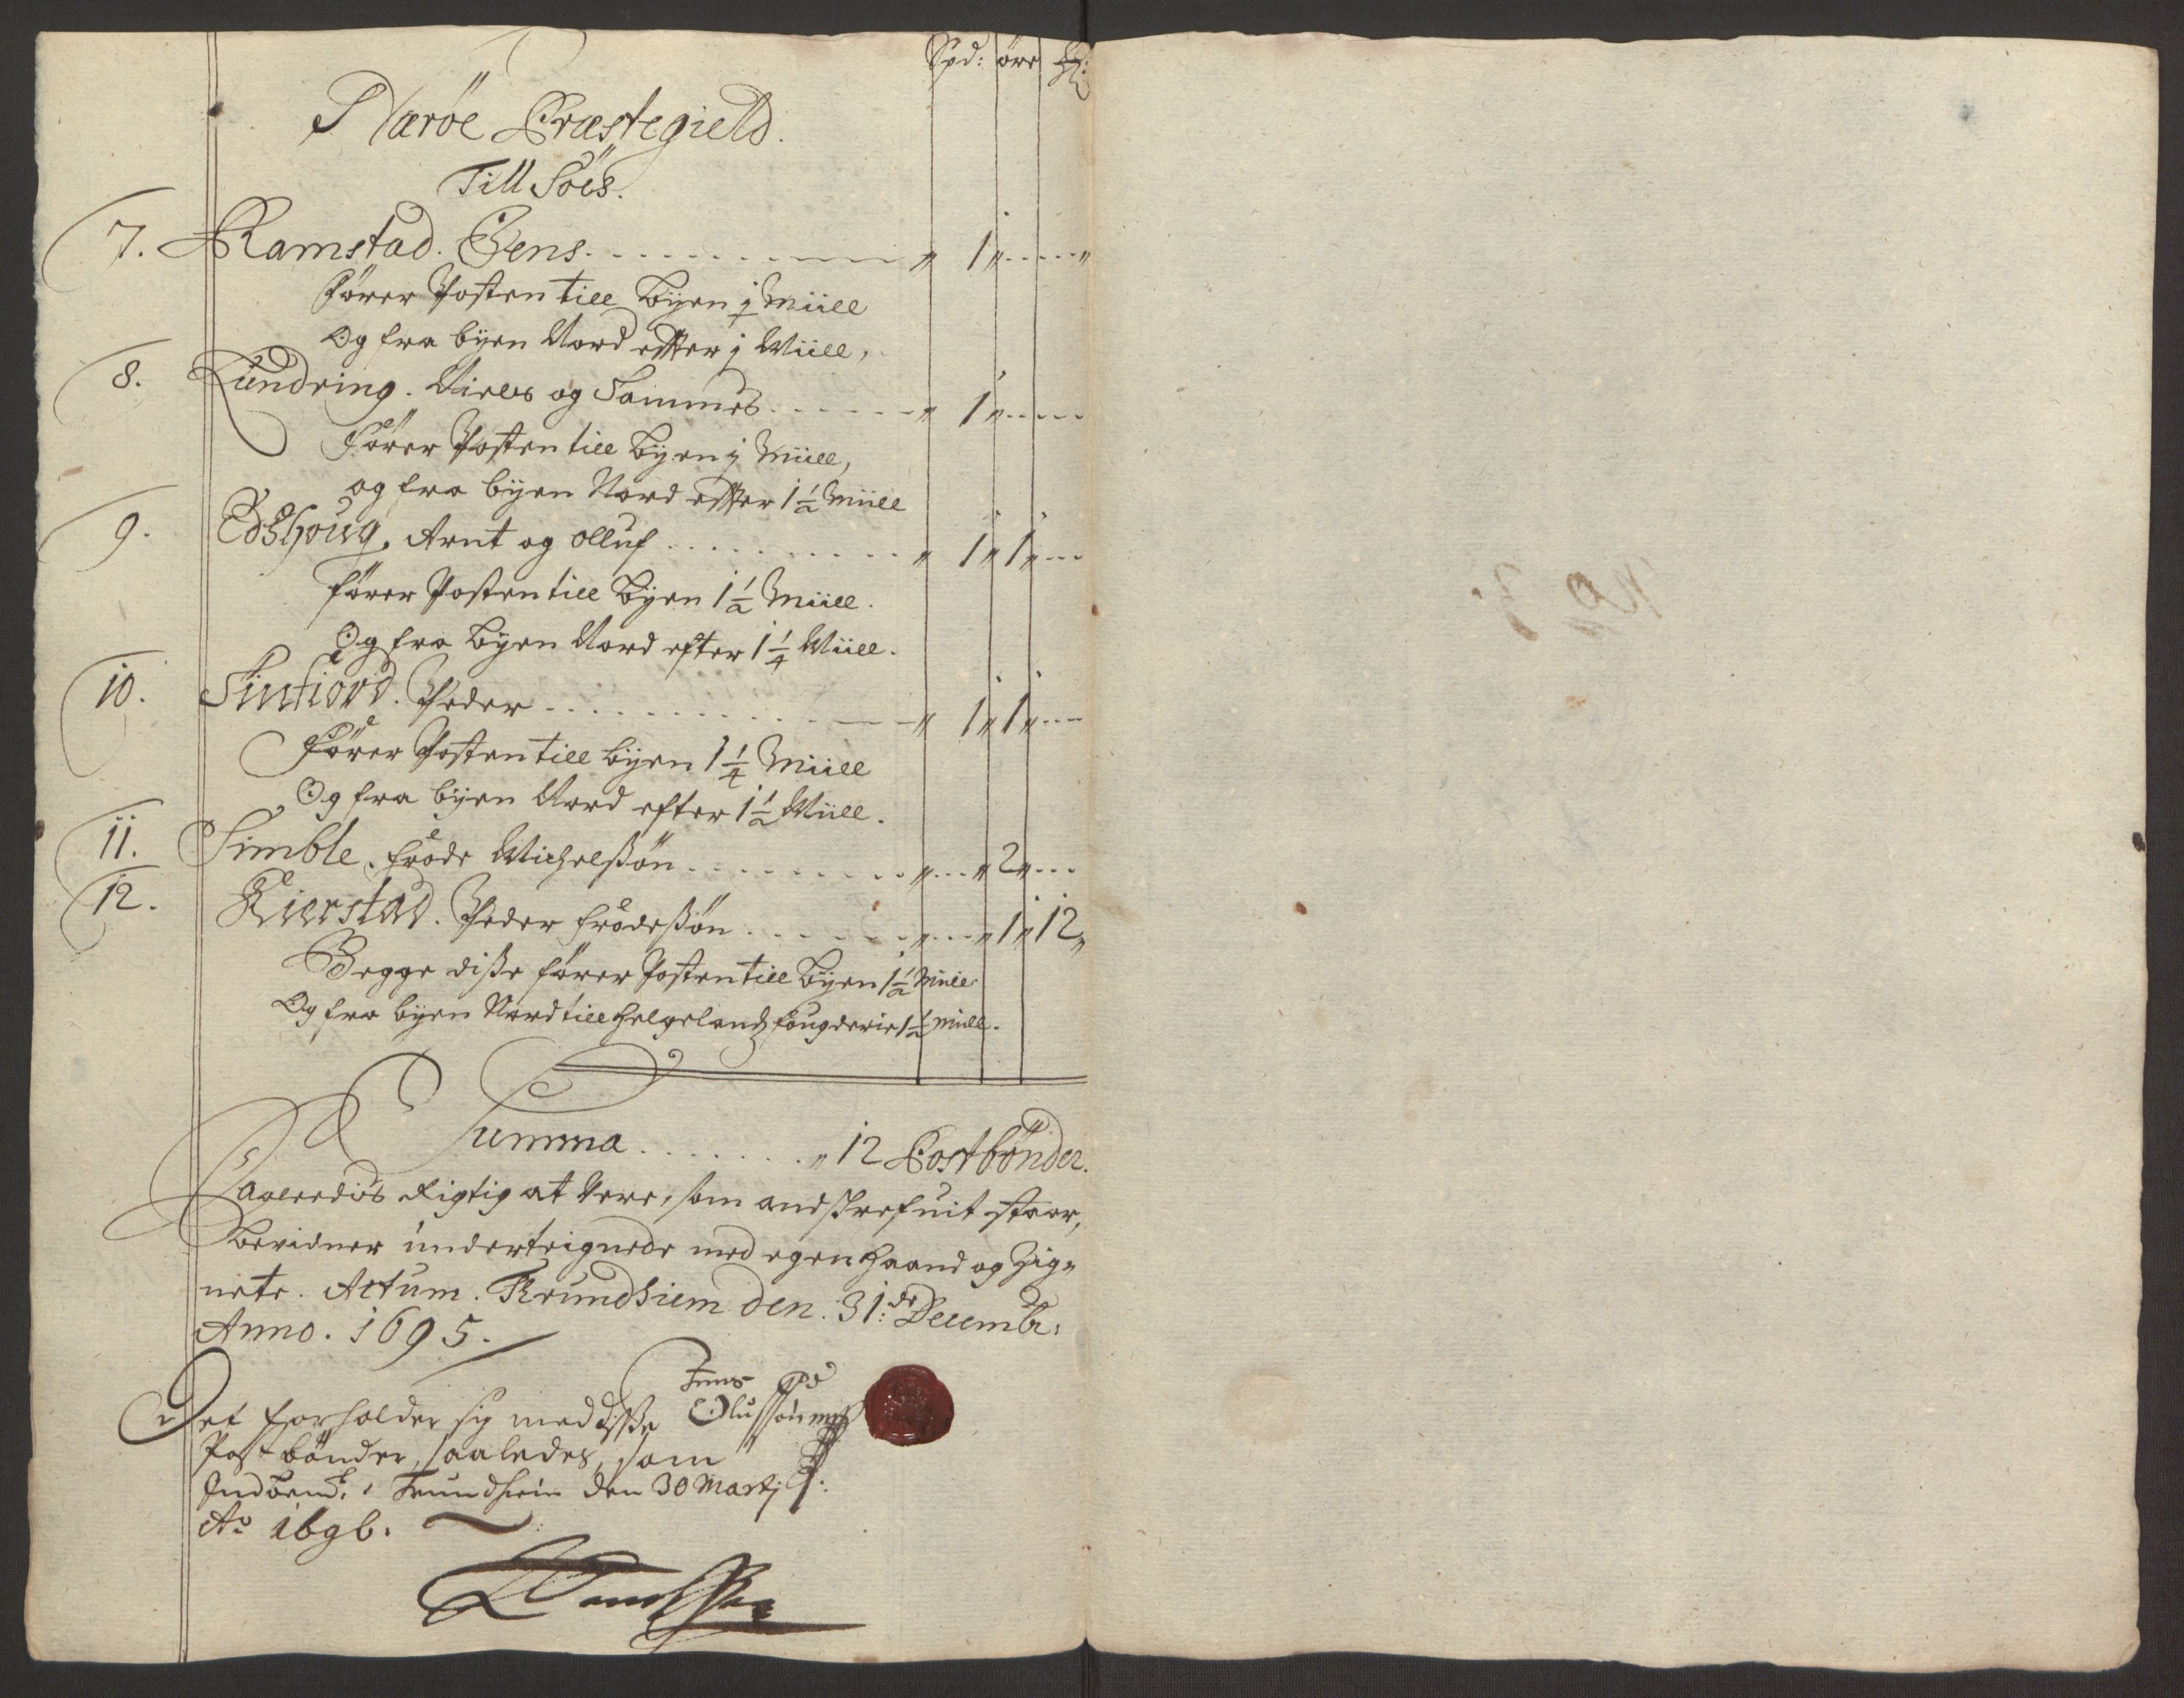 Spd: öre
Næröe Præstegield.
Till Söes.
7. Ramstad. Jens . . . . . . . . . . „ 1 „ . . . . „
förer Posten till byen ½ Miill
Og fra byen Nord effter j Miill,
8. Lundring. Niels og Sammes . . . . . . „ 1 „ . . . .
Förer Posten till byen j Miill,
og fra byen Nord effter 1½ Miill
9. Edshoug. Arnt og Olluf . . . . . . . . . . „ 1 „ 1 „ . . .
förer Posten till Byen 1½ Miill.
Og fra byen Nord efter 1¼ Miill.
10. Peder . . . . . . . . . . . „ 1 „ 1 „ . . .
Förer Posten till byen 1¼ Miill
Og fra byen Nord efter 1½ Miill.
11. Simble. Frode Michelßön . . . . . . . . . „ . . . „ 2 „ . . .
12. Kierstad. Peder Frodeßön . . . . . . „ . . . „ 1 „ 12 „
Begge diße förer Posten till Byen 1½ Miill
Og fra byen Nord till Helgelandz fougderie 1½ Miill.
Summa . . . . . . . „ 12 Postbönder.
Saaleedis Rigtig at Vere, som andßrefuit staar,
bevidner underteignede med egen Haand og Zig„
nete. Actum. Trundhiem den. 31: de Decembr:
Anno. 1695.
Jens
Olufsön mpp
Det forholder sig med disse
Postbönder, saaledes, som
Trundhiem den 30 Martj
Ao 1696.